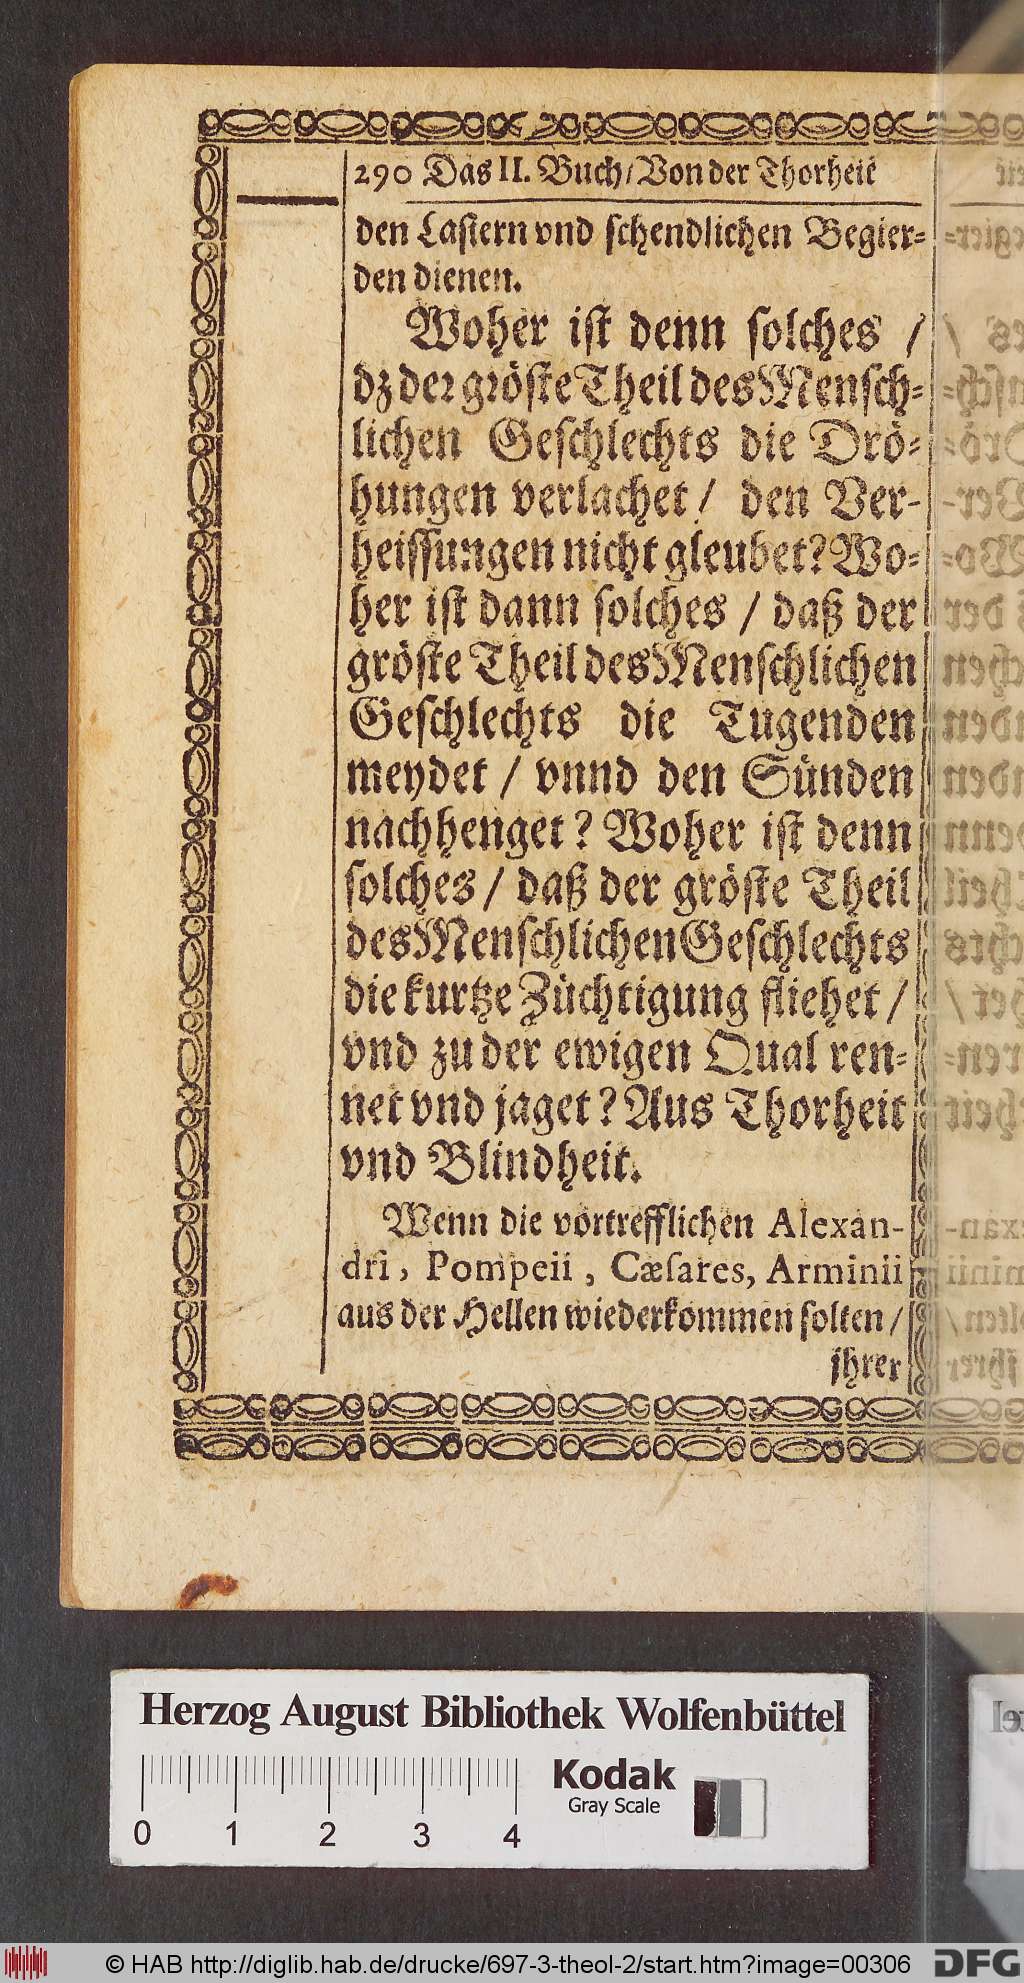 290 Das II. Buch/Von der Thorheit
den Lastern vnd schendlichen Begier-
den dienen.
Woher ist denn solches /
dz der gröste Theil des Mensch-
lichen Geschlechts die Drö-
hungen verlachet / den Ver-
heissungen nicht gleubet? Wo-
her ist dann solches / daß der
gröste Theil des Menschlichen
Geschlechts die Tugenden
meydet / vnnd den Sünden
nachhenget? Woher ist denn
solches / daß der gröste Theil
des Menschlichen Geschlechts
die kurtze Züchtigung fliehet /
vnd zu der ewigen Qual ren-
net vnd jaget? Aus Thorheit
vnd Blindheit.
Wenn die vortrefflichen Alexan-
dri, Pompeii, Cæsares, Arminii
aus der Hellen wiederkommen solten /
jhrer
Herzog August Bibliothek Wolfenbüttel
Kodak
Gray Scale
0 1 2 3 4
© HAB http://diglib.hab.de/drucke/697-3-theol-2/start.htm?image=00306
DFG